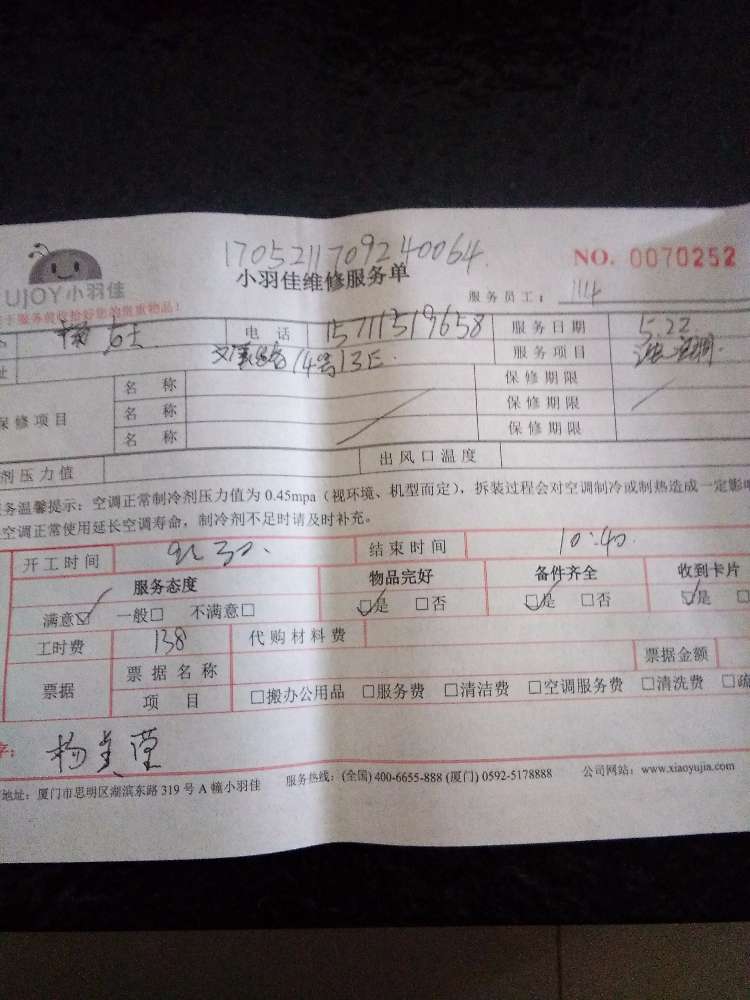 170521170924 0064
NO. 0070252
UJOY小羽佳
小羽佳维修服务单
服务员工： 1114
电 话 15711519658 服务日期 5.22
14号13E. 服务项目
保修项目 名 称 保修期限
名 称 保修期限
名 称 保修期限
剂压力值 出风口温度
务温馨提示：空调正常制冷剂压力值为 0.45mpa（视环境、机型而定），拆装过程会对空调制冷或制热造成一定影
空调正常使用延长空调寿命，制冷剂不足时请及时补充。
开工时间 9:30. 结束时间 10:40.
服务态度 物品完好 备件齐全 收到卡片
满意☑ 一般□ 不满意□ ☑是 □否 ☑是 □否 ☑是 □
工时费 138 代购材料费
票据 票据名称 票据金额
项 目 □搬办公用品 □服务费 □清洁费 □空调服务费 □清洗费 □疏
字： 杨美莹
地址：厦门市思明区湖滨东路 319 号 A 幢小羽佳 服务热线：(全国) 400-6655-888 (厦门) 0592-5178888 公司网站：www.xiaoyujia.com